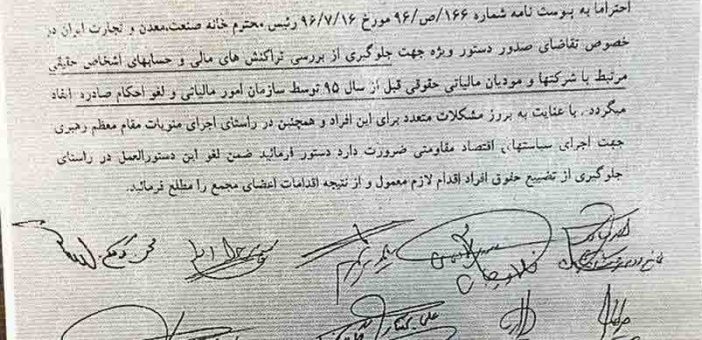 احتراما به پیوست نامه شماره ۱۶۶/ص/۹۶ مورخ ۹۶/۷/۱۶ رئیس محترم خانه صنعت،معدن و تجارت ایران در
خصوص تقاضای صدور دستور ویژه جهت جلوگیری از بررسی تراکنش های مالی و حسابهای اشخاص حقیقی
مرتبط با شرکتها و مودیان مالیاتی حقوقی قبل از سال ۹۵ توسط سازمان امور مالیاتی و لغو احکام صادره ایفاد
میگردد . با عنایت به بروز مشکلات متعدد برای این افراد و همچنین در راستای اجرای منویات مقام معظم رهبری
جهت اجرای سیاستهای اقتصاد مقاومتی ضرورت دارد دستور فرمائید ضمن لغو این دستورالعمل در راستای
جلوگیری از تضییع حقوق افراد اقدام لازم معمول و از نتیجه اقدامات اعضای مجمع را مطلع فرمائید.